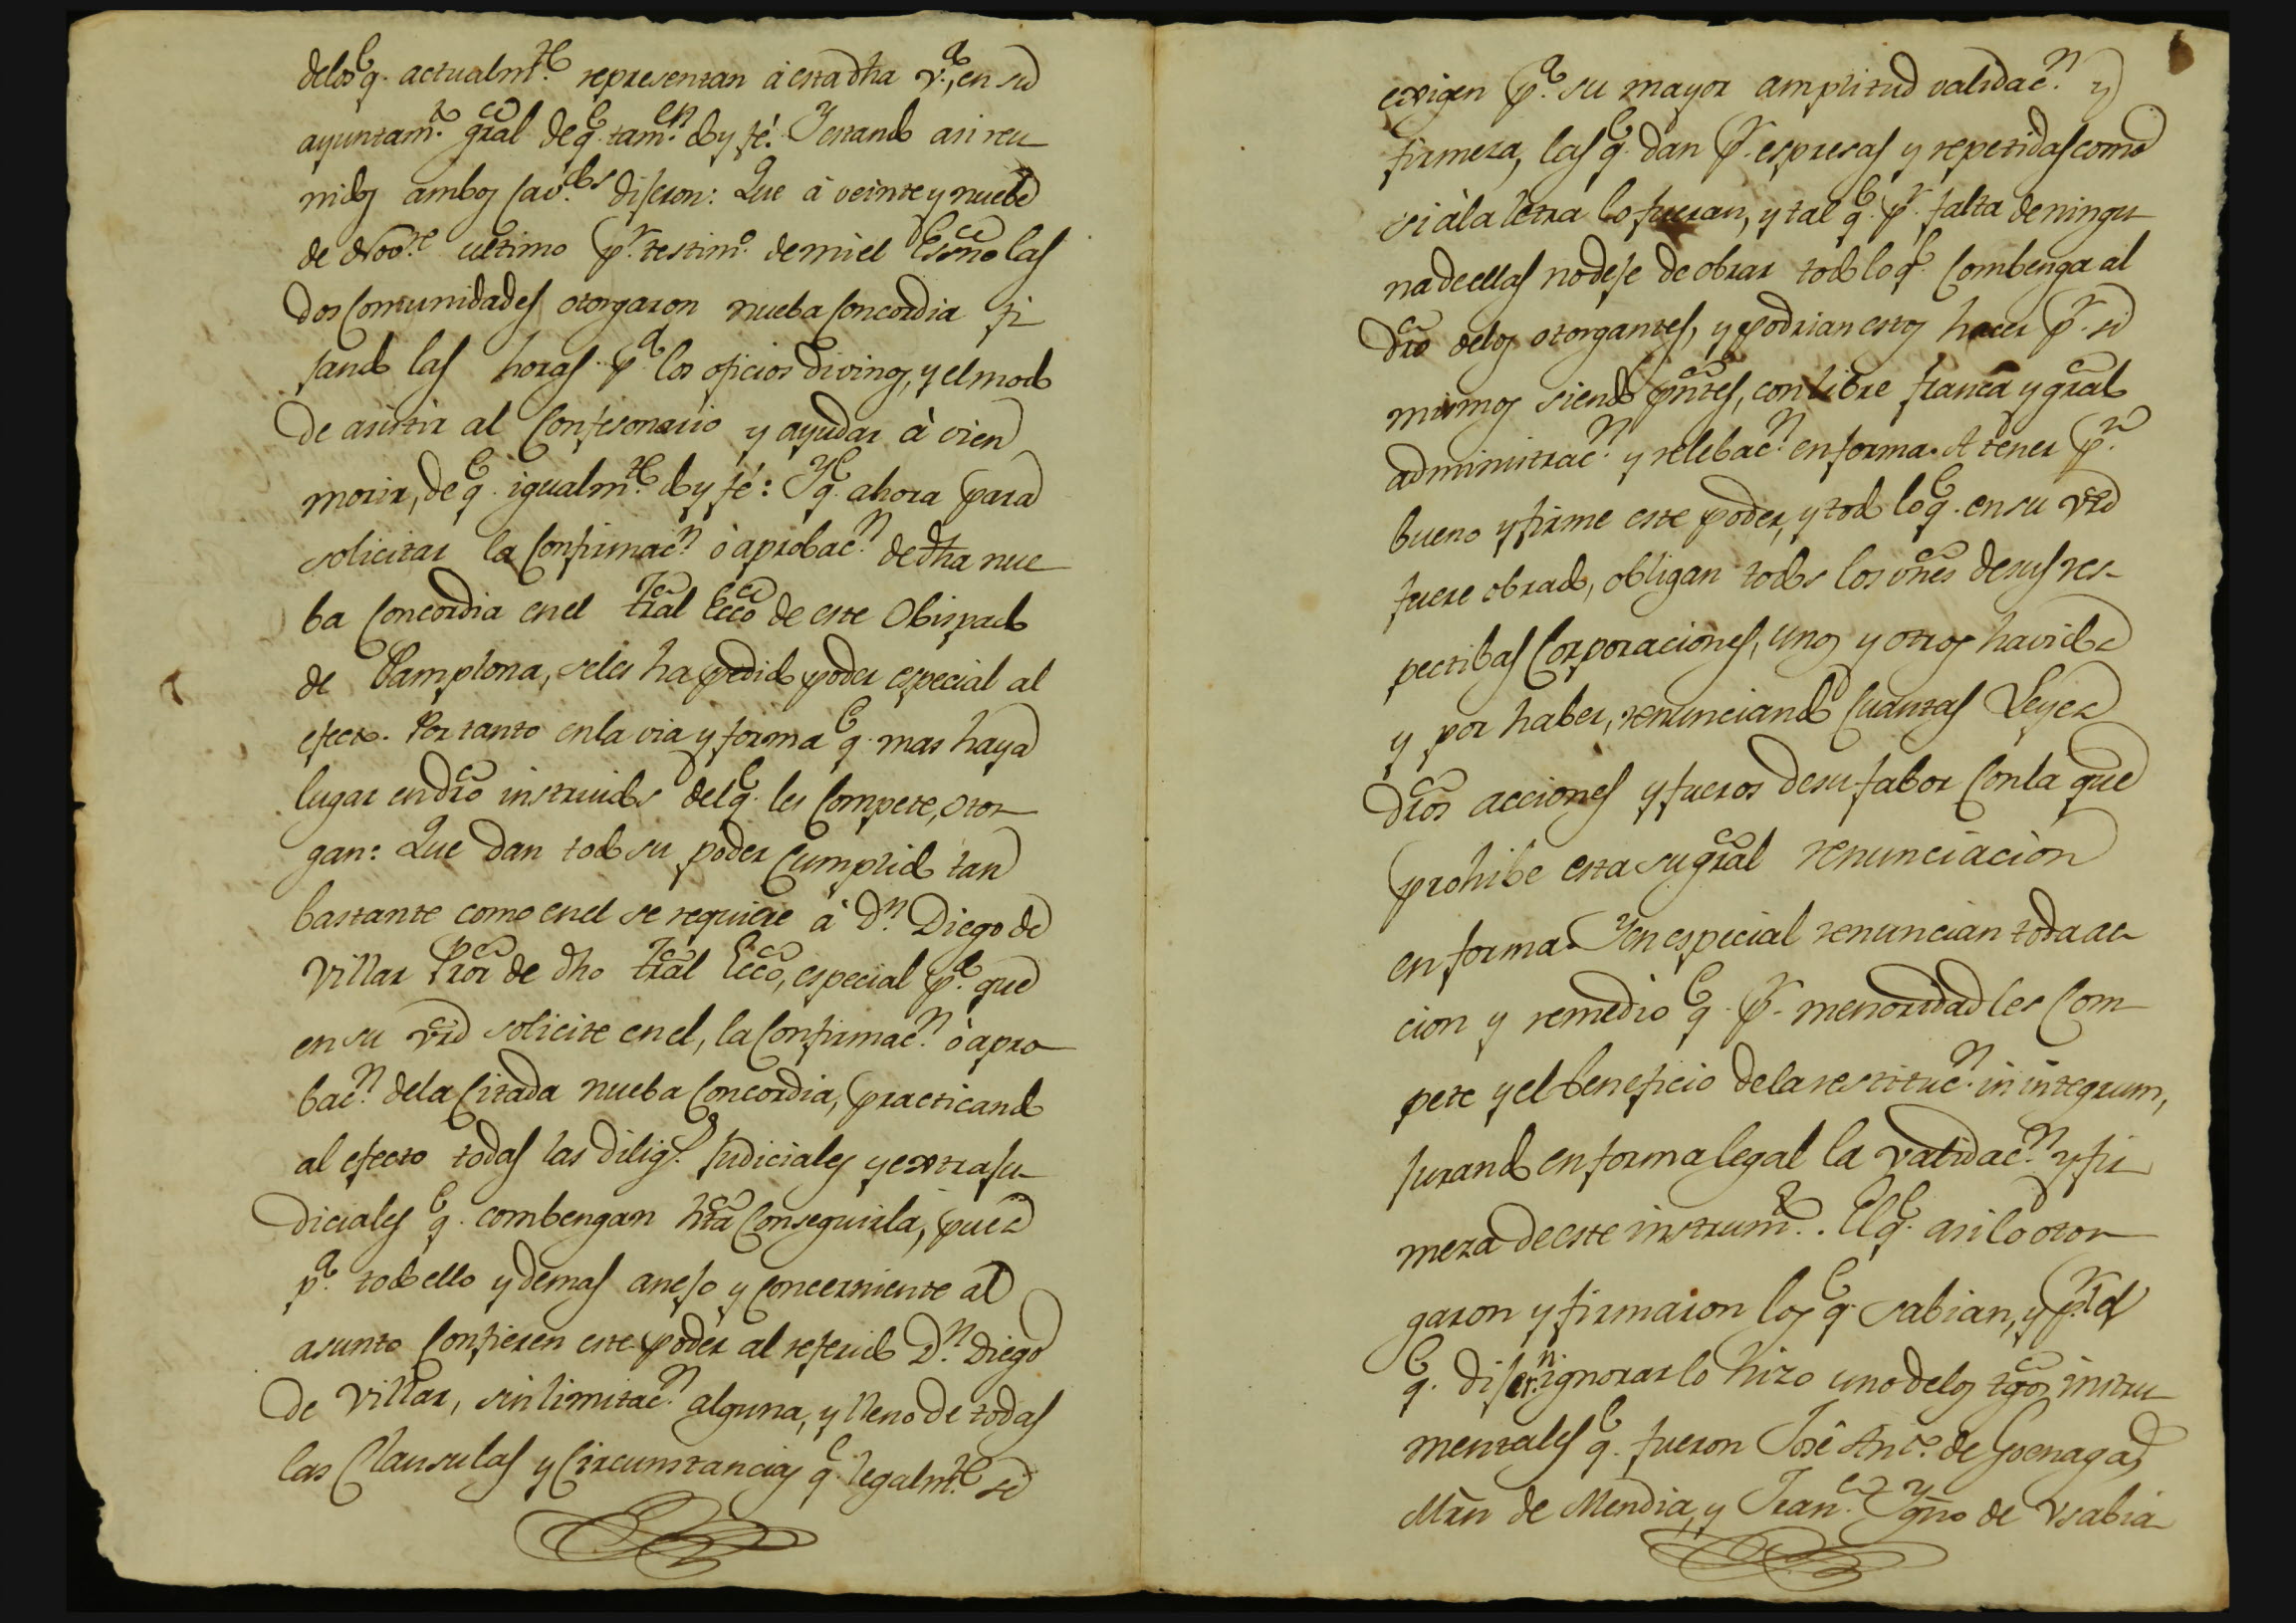 delos q.e actualm.te representan à esta dha v.a, en su
ayuntam.to gral de q.e tam.en doy fé. Y estando asi reu
nidos ambos cav.dos dijeron: Que à veinte y nuebe
de Nov.re ultimo p.r testim.o de mi el Essno las
dos Comunidades otorgaron nueba Concordia fi
jando las horas p.a los oficios divinos, y el modo
de asistir al Confesonario y ayudar à vien
morir, de q.e igualm.te doy fé: Y q.e ahora para
solicitar la Confirmac.n ò aprobac.n de dha nue
ba Concordia en el Tral Ecco de este Obispado
de Pamplona, seles ha pedido poder especial al
efecto. Por tanto en la via y forma q.e mas haya
lugar en dro instruidos del q.e les Compete, otor
gan: Que dan todo su poder Cumplido tan
bastante como en el se requiere à D.n Diego de
Villar Pror de dho Tral Ecco, especial p.a que
en su vrd solicite en el, la Confirmac.n ò apro
bac.n dela Citada nueba Concordia, practicando
al efecto todas las dilig.s Judiciales y extraju
diciales q.e combengan hta Conseguirla, pues
p.a todo ello y demas anejo y Concerniente al
asunto Confieren este poder al referido D.n Diego
de Villar, sin limitac.n alguna, y lleno de todas
las Clausulas y Circunstancias q.e legalm.te se
exigen p.a su mayor amplitud validac.n y
firmeza, las q.e dan p.r espresas y repetidas como
si à la letra lo fueran, y tal q.e p.r falta de ningu
na de ellas no deje de obrar todo lo q.e Combenga al
dro delos otorgantes, y podrian estos hacer p.r si
mismos siendo pntes, con libre franca y gral
administrac.n y relebac.n en forma. A tener p.r
bueno y firme este poder, y todo lo q.e en su vrd
fuere obrado, obligan todos los vnes de sus res-
pectibas Corporaciones, unos y otros havidos
y por haber, renunciando Cuantas Leyes
dros acciones y fueros de su fabor Con la que
prohibe esta su gral renunciaciòn
en forma. Y en especial renuncian toda ac
cion y remedio q.e p.r menoridad les Com
pete y el beneficio dela restituc.n in integrum,
jurando en forma legal la validac.n y fir
meza de este instrum.to. El q.e asi lo otor
garon y firmaron los q.e sabian, y p.r el
q.e dijer.n ignorar lo hizo uno delos tgos instru
mentales q.e fueron José Ant.o de Goenaga,
Mrn de Mendia, y Fran.co Ygno de Vsabia